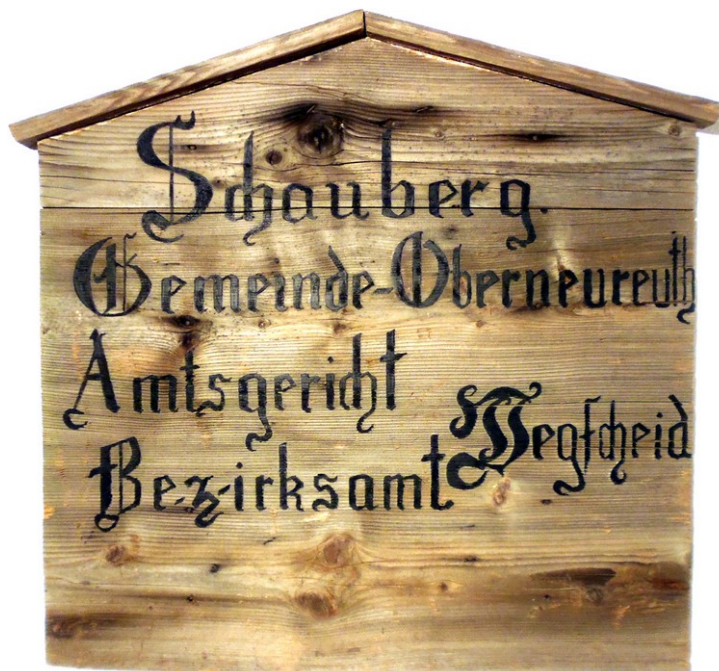 Schauberg.
Gemeinde-Oberneureuth
Amtsgericht
Bezirksamt
Wegſcheid